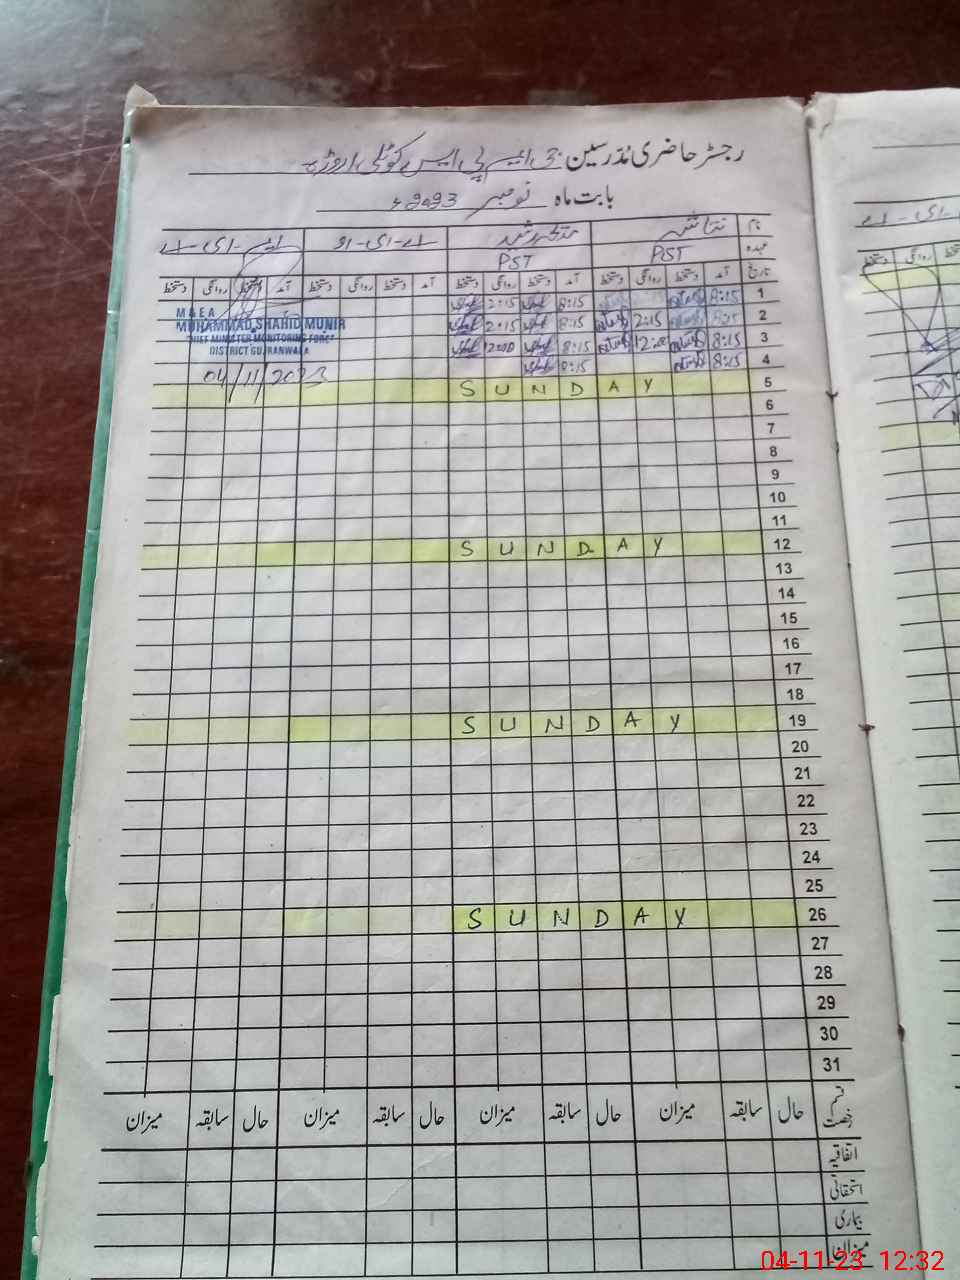 رجسٹر حاضری مُدرسین جی ایم پی ایس کوٹلی اروڑہ
بابت ماہ نومبر 2023ء
نام نتاشہ اے-ای-او ایم-ای-اے
عہدہ PST PST
تاریخ آمد دستخط روانگی دستخط آمد دستخط روانگی دستخط آمد دستخط روانگی دستخط آمد دستخط روانگی دستخط
1 8:15 8:15 2:15
2 8:15 2:15 8:15 2:15
3 8:15 12:00 8:15 1200
4 8:15 8:15
M & E A
MUHAMMAD SHAHID MUNIR
CHIEF MINISTER MONITORING FORCE
DISTRICT GUJRANWALA
04/11/2023
SUNDAY 5
6
7
8
9
10
11
SUNDAY 12
13
14
15
16
17
18
SUNDAY 19
20
21
22
23
24
25
SUNDAY 26
27
28
29
30
31
قسم رخصت حال سابقہ میزان حال سابقہ میزان حال سابقہ میزان حال سابقہ میزان
اتفاقیہ
استحقاقی
بیماری
میزان
04-11-23 12:32